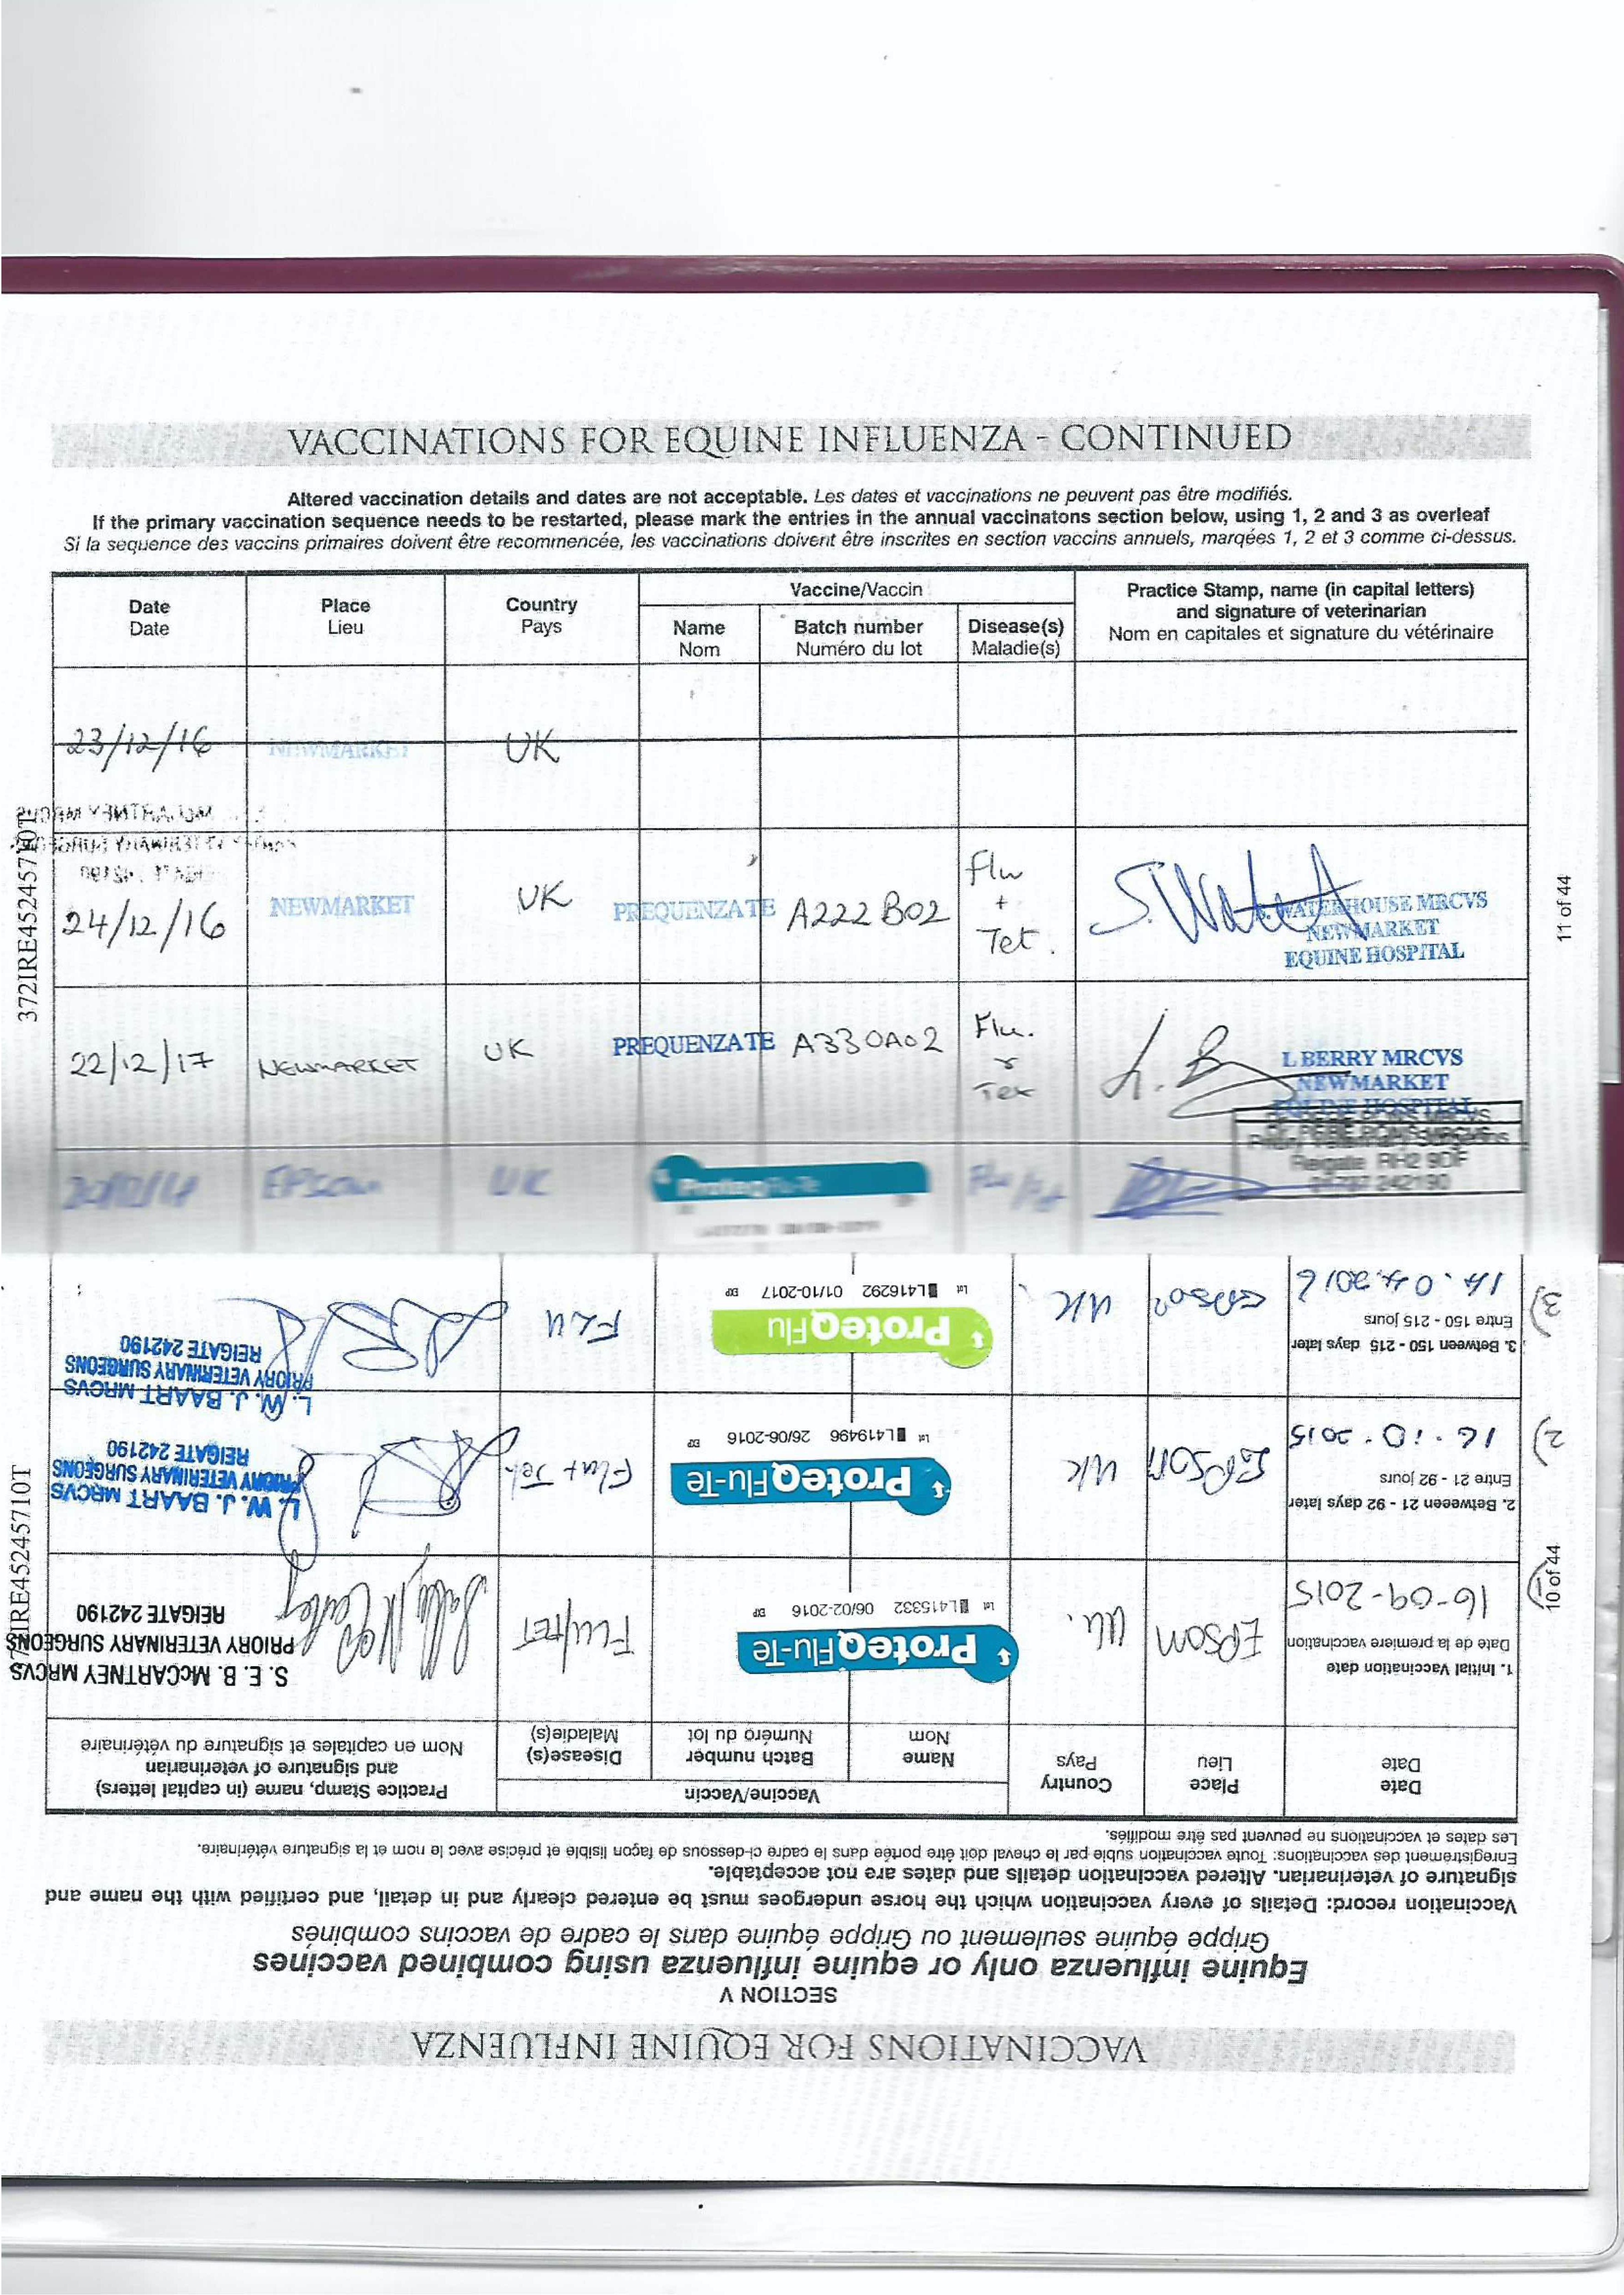 VACCINATIONS FOR EQUINE INFLUENZA - CONTINUED
Altered vaccination details and dates are not acceptable. Les dates et vaccinations ne peuvent pas être modifiés.
If the primary vaccination sequence needs to be restarted, please mark the entries in the annual vaccinatons section below, using 1, 2 and 3 as overleaf
Si la sequence des vaccins primaires doivent être recommencée, les vaccinations doivent être inscrites en section vaccins annuels, marqées 1, 2 et 3 comme ci-dessus.
Date
Date
Place
Lieu
Country
Pays
Vaccine/Vaccin
Name
Nom
Batch number
Numéro du lot
Disease(s)
Maladie(s)
Practice Stamp, name (in capital letters)
and signature of veterinarian
Nom en capitales et signature du vétérinaire
23/12/16 NEWMARKET UK
24/12/16 NEWMARKET UK PREQUENZA TE A222 B02 Flu
+
Tet.
S. WATERHOUSE MRCVS
NEWMARKET
EQUINE HOSPITAL
22/12/17 NEWMARKET UK PREQUENZA TE A330A02 Flu.
L. B
L BERRY MRCVS
NEWMARKET
EQUINE HOSPITAL
EPSOM UK ProteqFlu-Te Flu/Tet
Reigate RH2 9DF
242190
372IRE45245710T
11 of 44
VACCINATIONS FOR EQUINE INFLUENZA
SECTION V
Equine influenza only or equine influenza using combined vaccines
Grippe équine seulement ou Grippe équine dans le cadre de vaccins combinés
Vaccination record: Details of every vaccination which the horse undergoes must be entered clearly and in detail, and certified with the name and
signature of veterinarian. Altered vaccination details and dates are not acceptable.
Enregistrément des vaccinations: Toute vaccination subie par le cheval doit être portée dans le cadre ci-dessous de façon lisible et précise avec le nom et la signature vétérinaire.
Les dates et vaccinations ne peuvent pas être modifiés.
Date
Date
Place
Lieu
Country
Pays
Vaccine/Vaccin
Name
Nom
Batch number
Numéro du lot
Disease(s)
Maladie(s)
Practice Stamp, name (in capital letters)
and signature of veterinarian
Nom en capitales et signature du vétérinaire
1)
1. Initial Vaccination date
Date de la premiere vaccination
16-09-2015
EPSOM
UK.
ProteqFlu-Te
Lot L415332 06/02-2016 EXP
Flu/TET
S. E. B. McCARTNEY MRCVS
PRIORY VETERINARY SURGEONS
REIGATE 242190
2)
2. Betweeen 21 - 92 days later
Entre 21 - 92 jours
16.10.2015
EPSOM
UK
ProteqFlu-Te
Lot L419496 26/06-2016 EXP
Flu+Tet
L. W. J. BAART MRCVS
PRIORY VETERINARY SURGEONS
REIGATE 242190
3)
3. Between 150 - 215 days later
Entre 150 - 215 jours
14.04.2016
UK
ProteqFlu
Lot L416292 01/10-2017 EXP
FLU
L. W. J. BAART MRCVS
PRIORY VETERINARY SURGEONS
REIGATE 242190
10 of 44
IRE45245710T